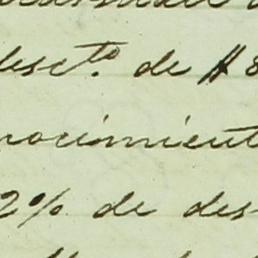 desct.º de $8
nocimient
2% de des-